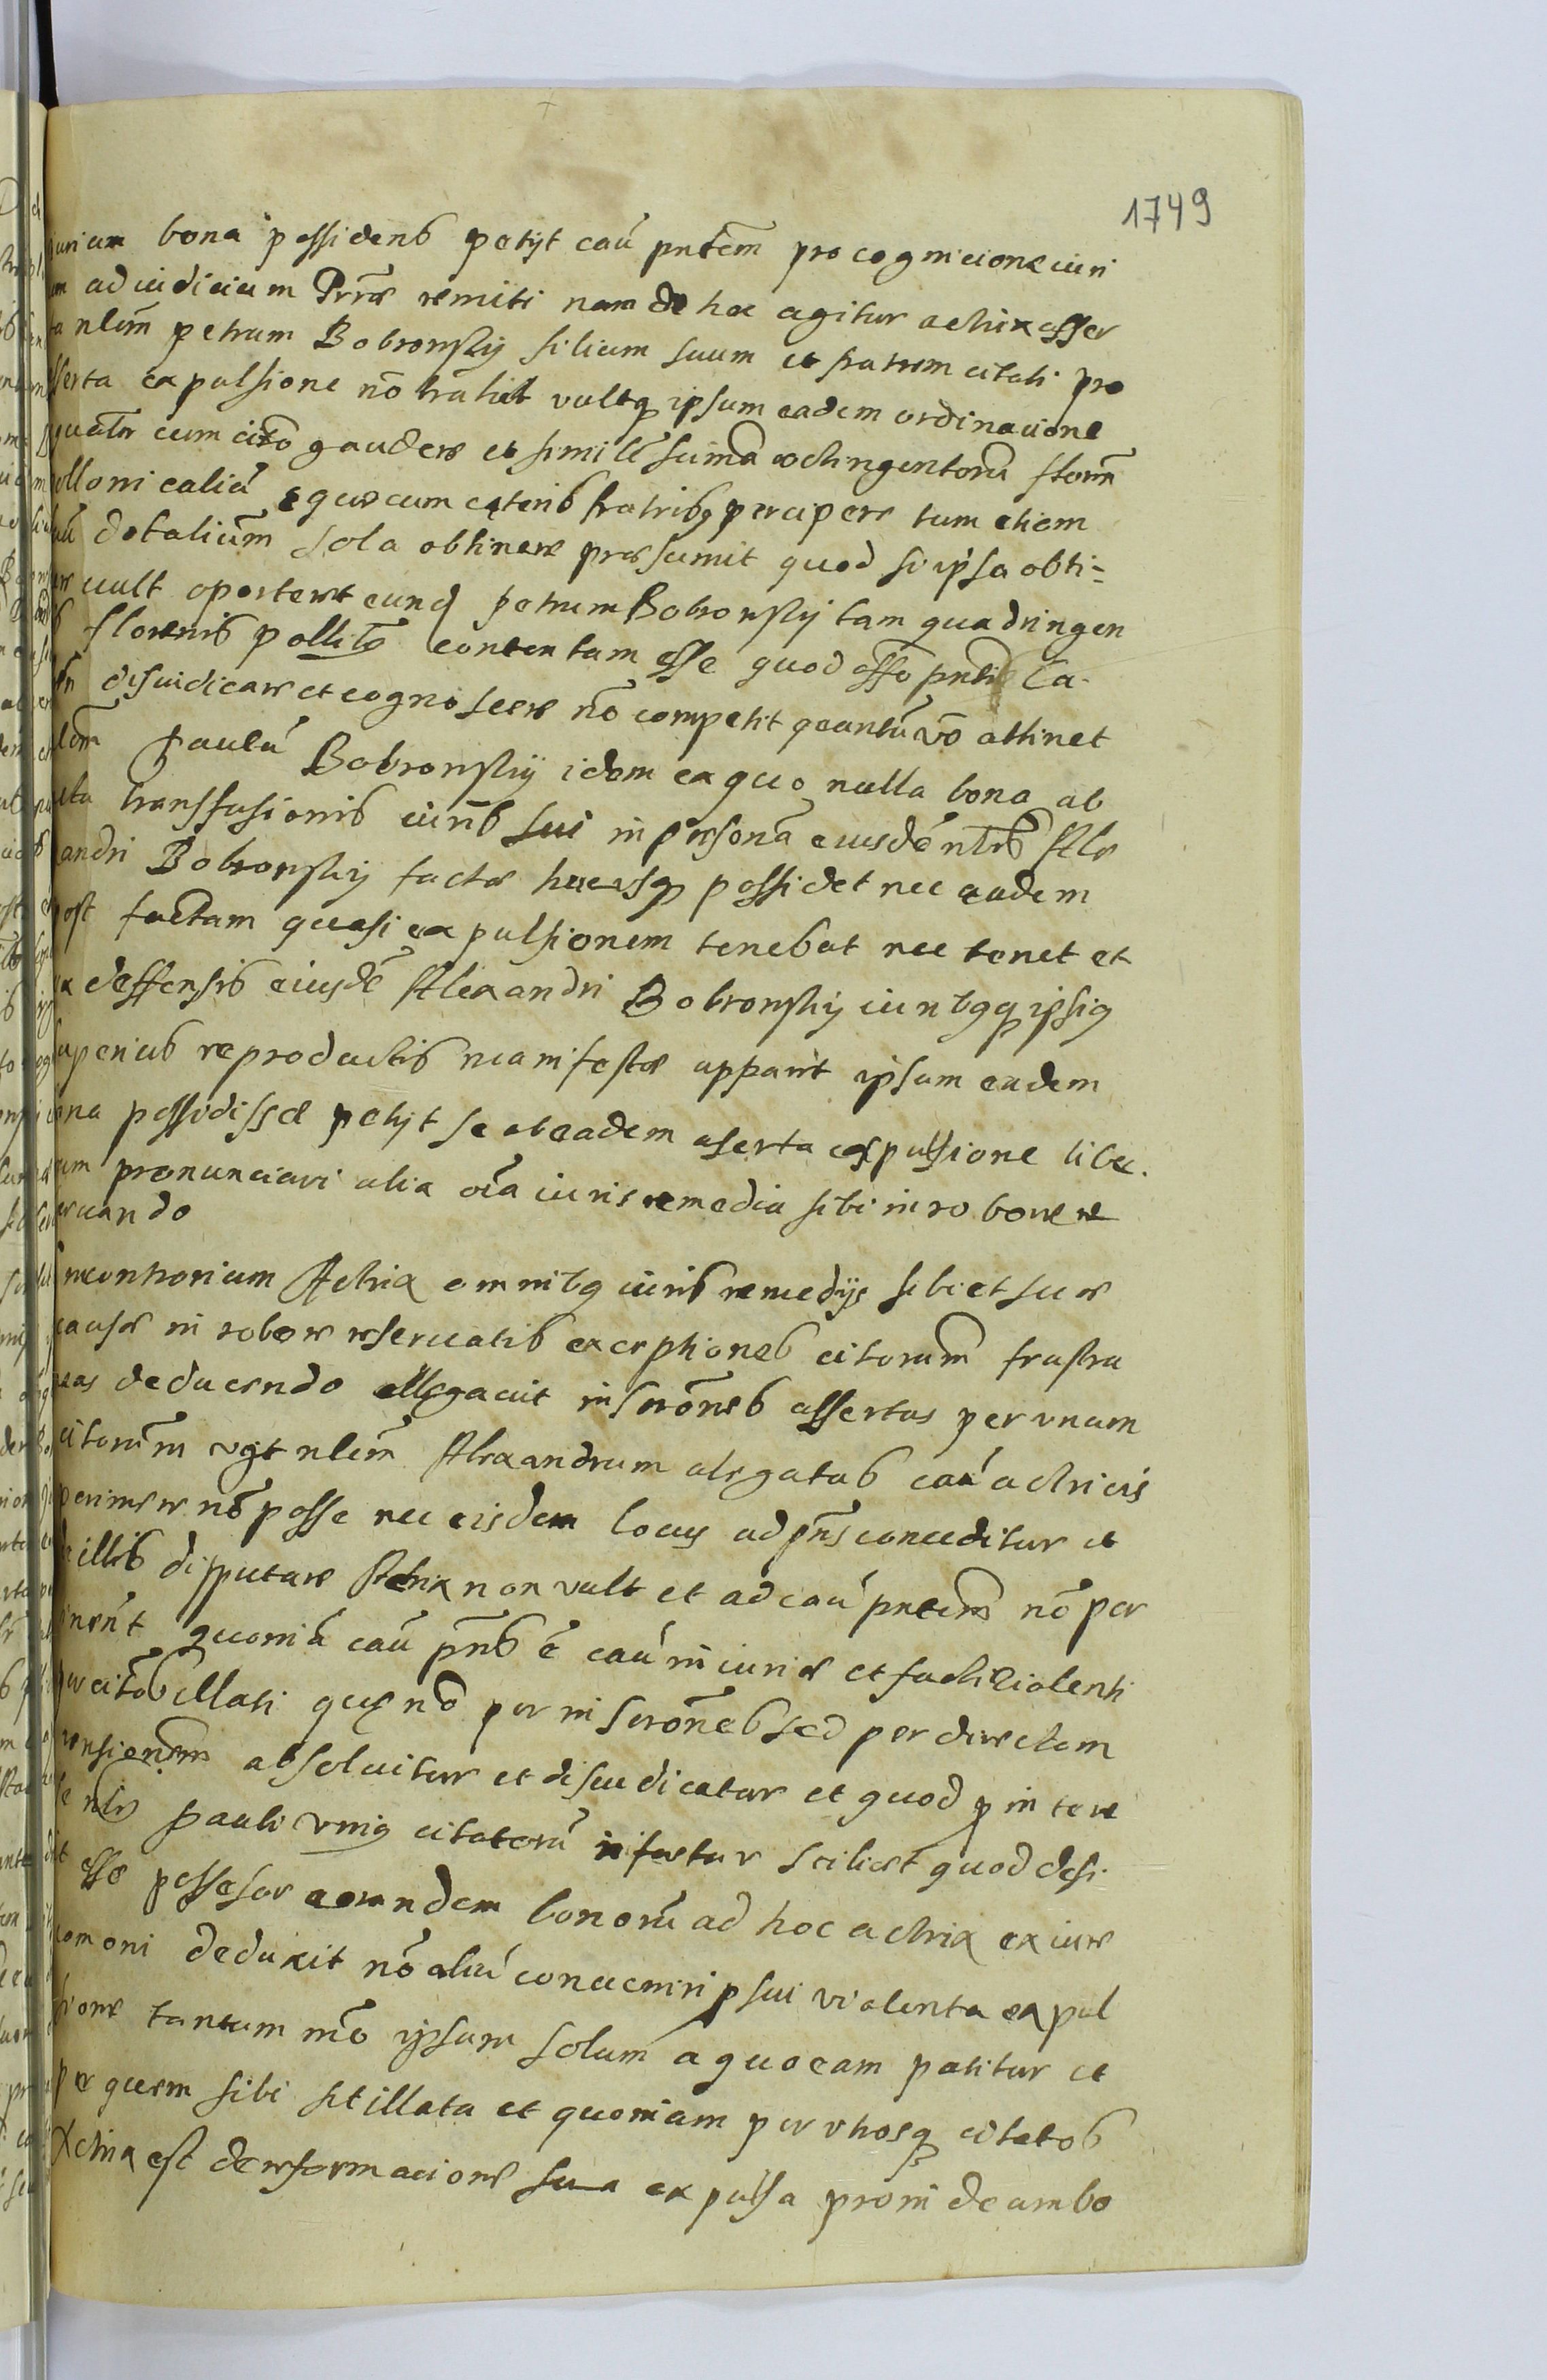 1749
iurium bona possidens petyt cau pntem pro cognicione iuri
ad iudicium Prrae remiti nam de hoc agitur actrix asser
nlem petrum Bobronskij filium suum et fratrem citati pro
serta expulsione no trahit vultq ipsum eadem ordinacione
cum cito gaudere et simile suma octingentoru floren
ollonicaliu eque cum ceteris fratribq percipere tum etiam
dotalium sola obtinere praesumit quod si ipsa obti=
vult oporteret eund petrum Bobronskij tam quadringen
florenis pollitis contentam esse quod offo pntis Ca-
disiudicare et cognoscere no competit quantu vo attinet
Paulu Bobronskij idem ex quo nulla bona ab
transfusionis iuris sui in persona eiusde nlis Ale
andri Bobronskij factae hucusq possidet nec eadem
ost factam quasi expulsionem tenebat nec tenet et
deffensis eiusde Alexandri Bobronskij iuribqq ipsiq
uperius reproductis manifeste apparit ipsum eadem
ona possidisse petyt se ab eadem aserta expulsione libe.
um pronunciari alia oia iuris remedia sibi in robore re
eruando
incontrarium Actrix omnibq iuris remedijs sibi et suae
causae in robore reseruatis exceptiones citorum frustra
eas deducendo allegauit inscrones assertas per vnam
citorum vgt nlem Alexandrum alegatas cau actricis
perimere no posse nec eisdem locus ad pns conceditur et
de illis disputare Actrix non vult et ad cau pntem no per
inent quonia cau pns e cau iniuriae et facti violenti
per citos illati que no per inscrones sed per directam
responsionem absoluitur et disiudicatur et quod p in tere
nlis Pauli vniq citatoru infertur scilicet quod desi
esse possesor eorundem bonoru ad hoc actrix ex iure
comoni deduxit no aliu conuemiri p sui violenta expul
sione tantum mo ipsum solum a quo eam patitur et
per quem sibi sit illata et quoniam per vtrosq citatos
Actrix est de reformacione sua expulsa proinde ambo